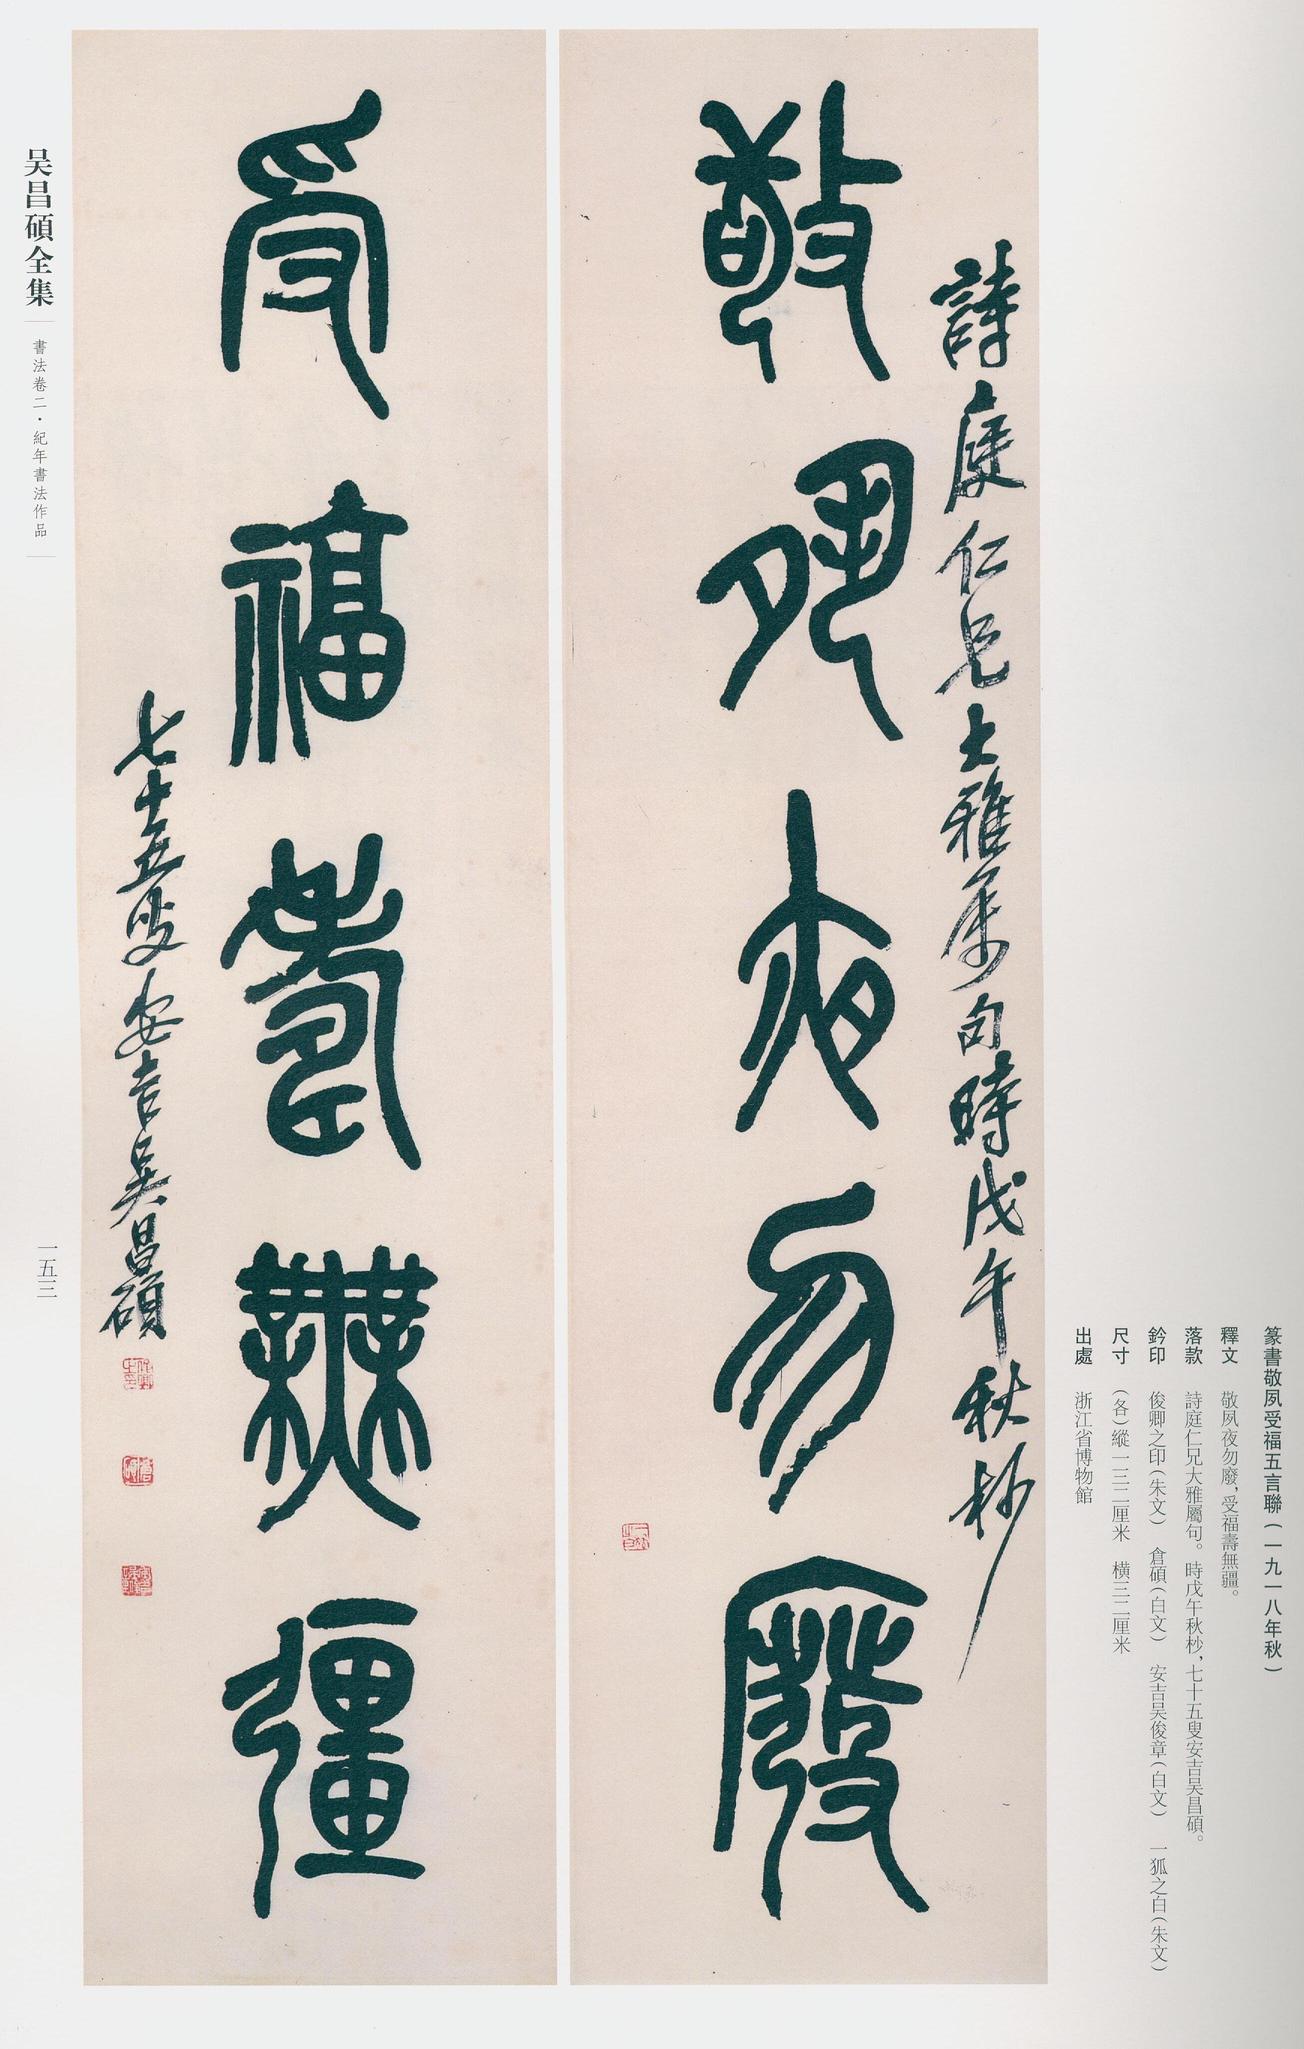 敬夙夜勿廢
詩庭仁兄大雅屬句時戊午秋杪
受福壽無疆
七十五叟安吉吳昌碩
篆書敬夙受福五言聯(一九一八年秋)
釋文 敬夙夜勿廢,受福壽無疆。
落款 詩庭仁兄大雅屬句。時戊午秋杪,七十五叟安吉吴昌碩。
鈐印 俊卿之印(朱文) 倉碩(白文) 安吉吴俊章(白文) 一狐之白(朱文)
尺寸 (各)縱一三二厘米 橫三二厘米
出處 浙江省博物館
吴昌碩全集
書法卷二·紀年書法作品
一五三